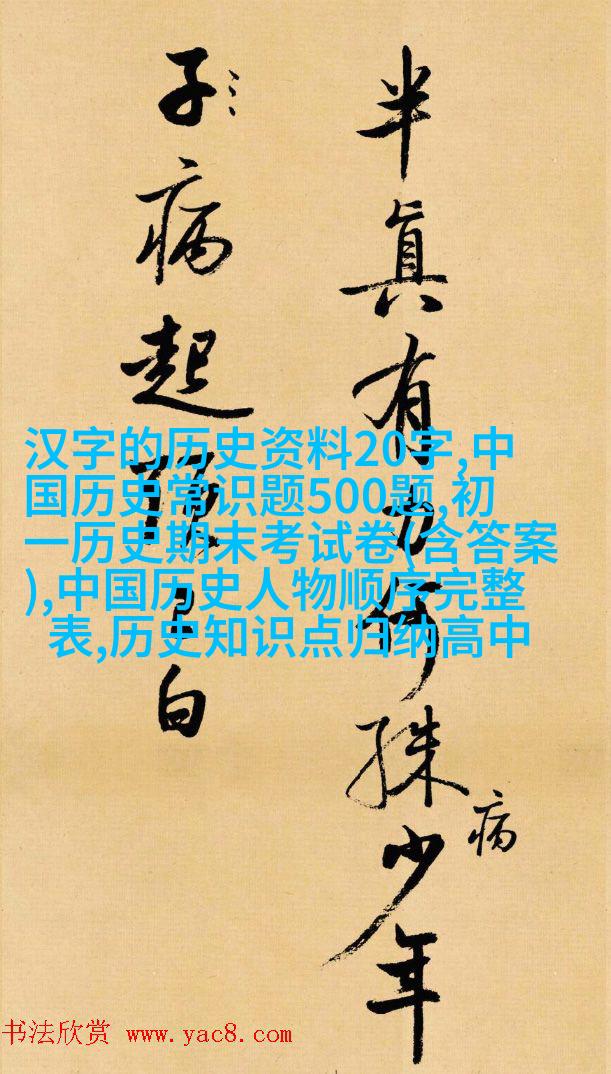 半真有何殊少年
病
子病起白
汉字的历史资料20字,中
国历史常识题500题,初
一历史期末考试卷(含答案
),中国历史人物顺序完整
表,历史知识点归纳高中
书法欣赏 www.yac8.com